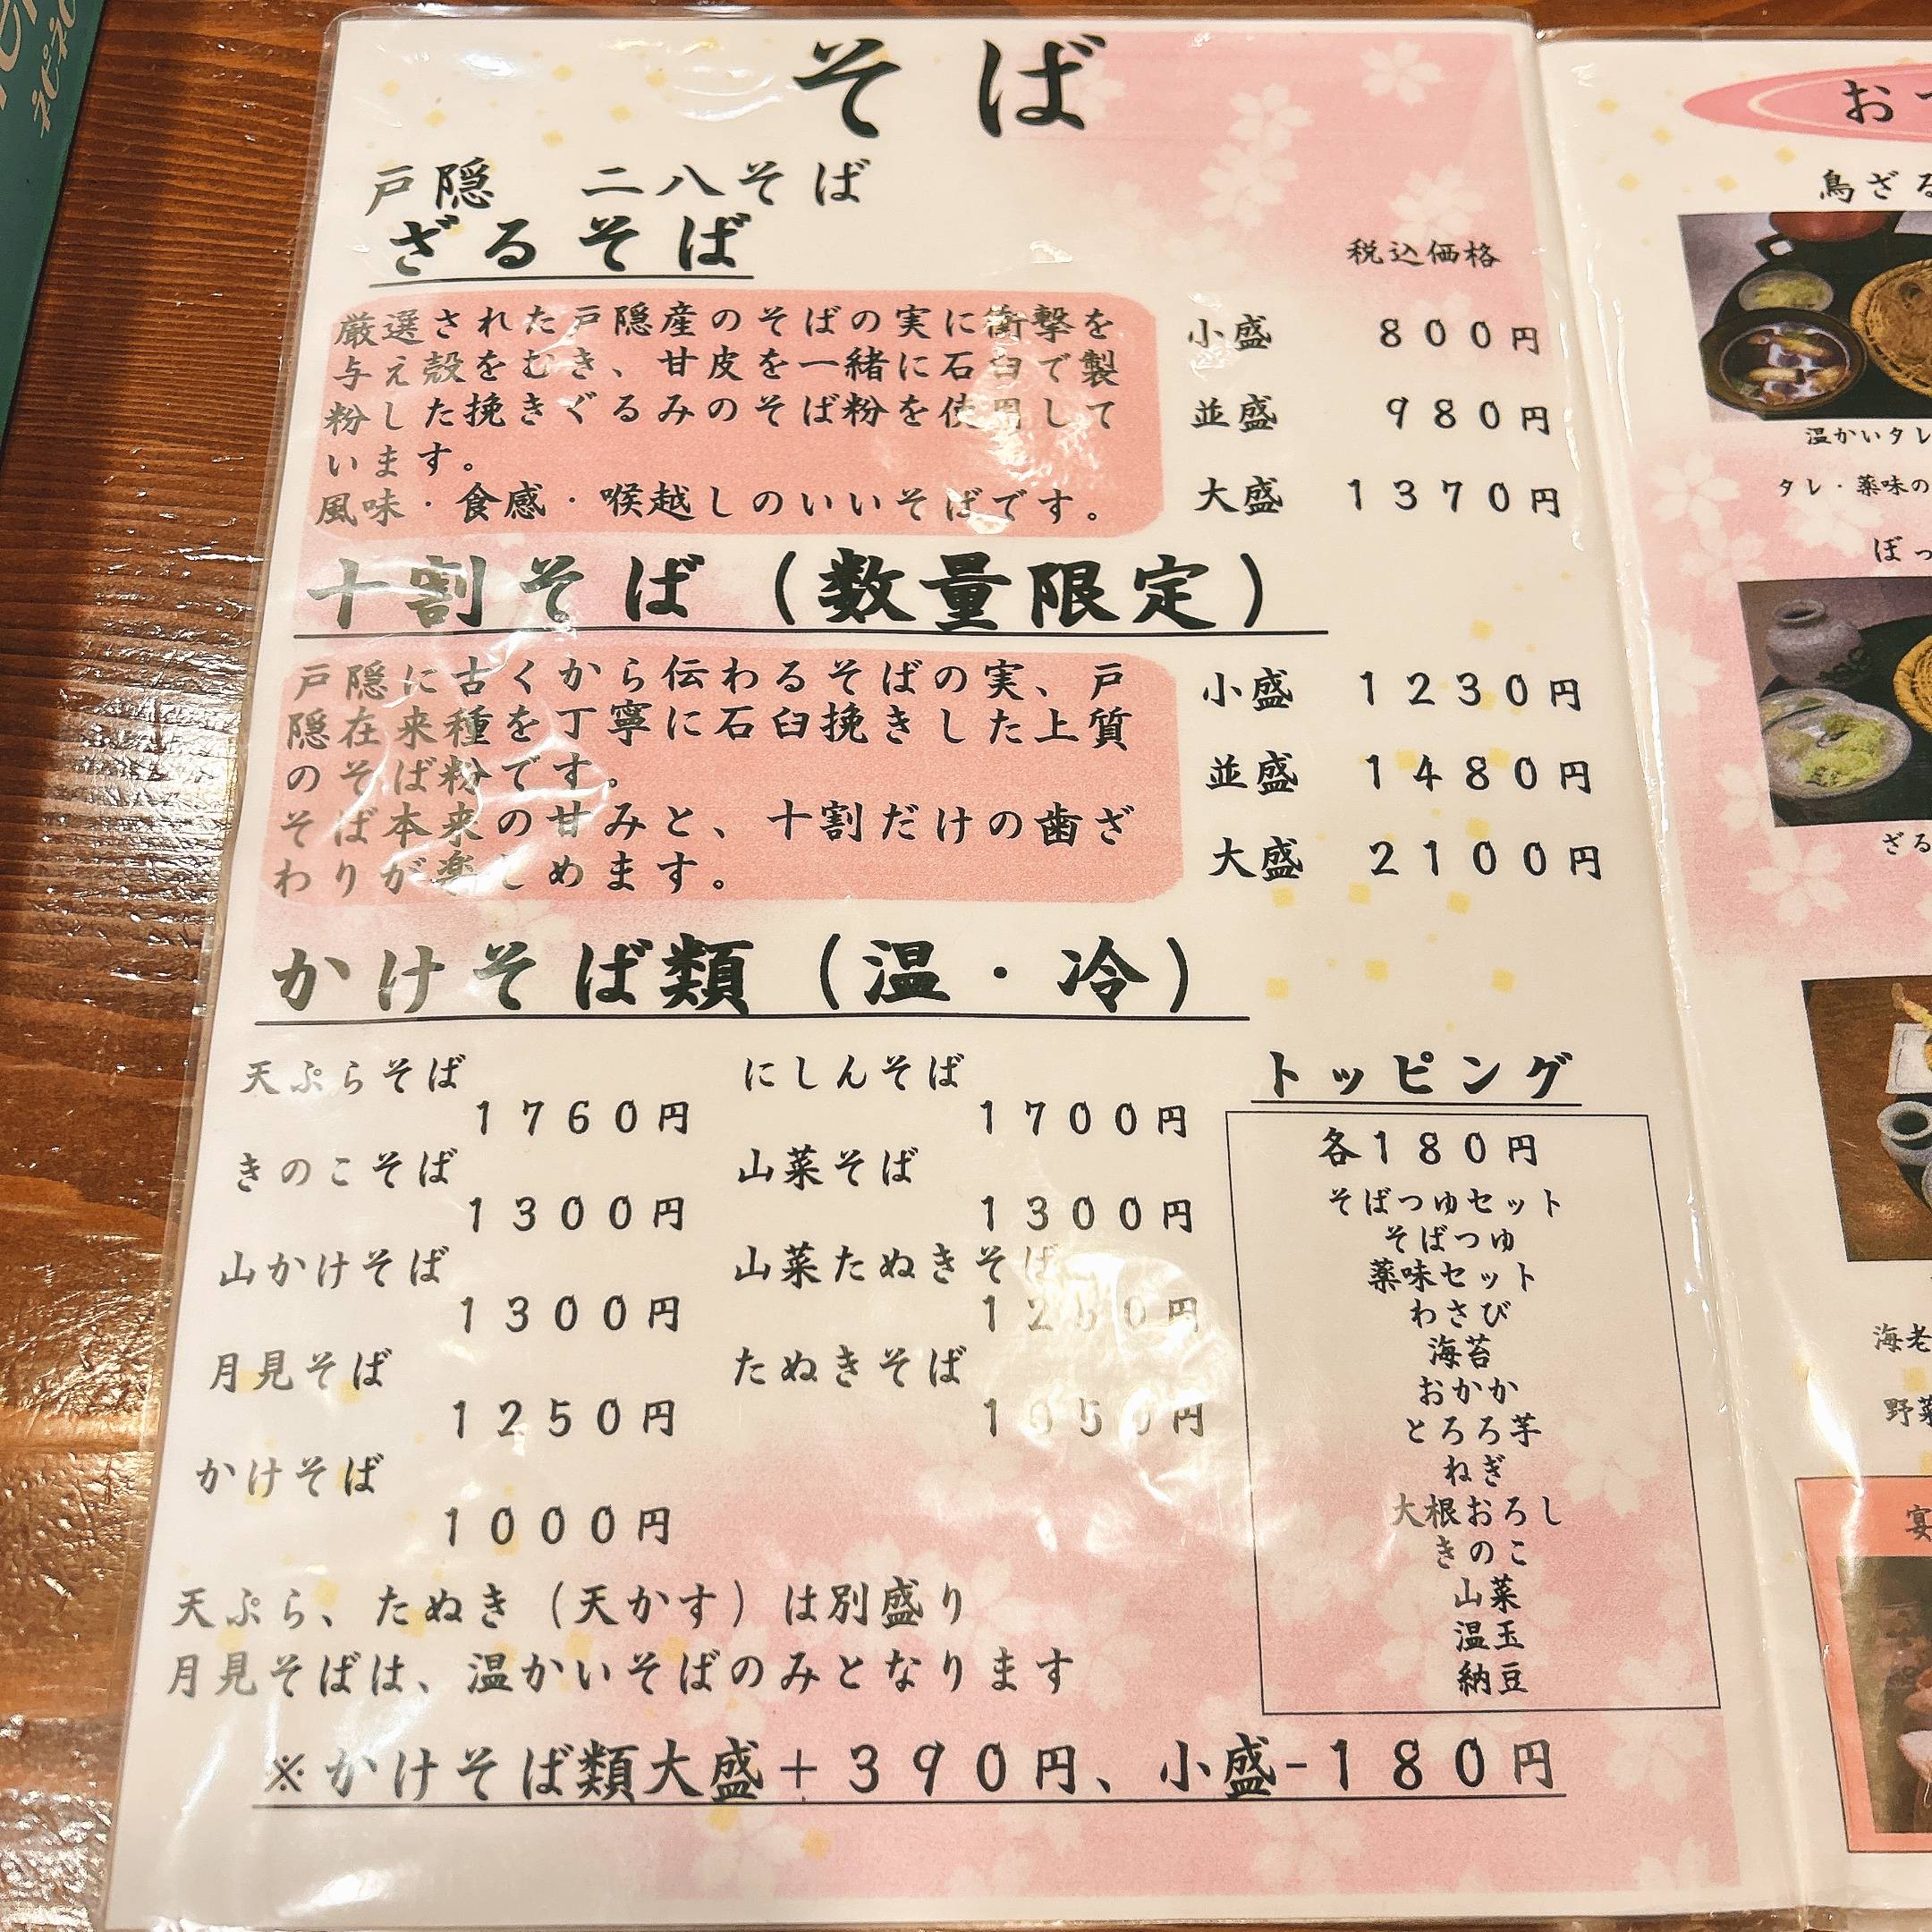 そば
戸隠 二八そば
ざるそば
税込価格
厳選された戸隠産のそばの実に衝撃を
与え殻をむき、甘皮を一緒に石臼で製
粉した挽きぐるみのそば粉を使用して
います。
風味・食感・喉越しのいいそばです。
小盛 800円
並盛 980円
大盛 1370円
十割そば（数量限定）
戸隠に古くから伝わるそばの実、戸
隠在来種を丁寧に石臼挽きした上質
のそば粉です。
そば本来の甘みと、十割だけの歯ざ
わりが楽しめます。
小盛 1230円
並盛 1480円
大盛 2100円
かけそば類（温・冷）
天ぷらそば
1760円
きのこそば
1300円
山かけそば
1300円
月見そば
1250円
かけそば
1000円
にしんそば
1700円
山菜そば
1300円
山菜たぬきそば
たぬきそば
1050円
トッピング
各180円
そばつゆセット
そばつゆ
薬味セット
わさび
海苔
おかか
とろろ芋
ねぎ
大根おろし
きのこ
山菜
温玉
納豆
天ぷら、たぬき（天かす）は別盛り
月見そばは、温かいそばのみとなります
※かけそば類大盛＋390円、小盛-180円
お
鳥ざる
温かいタレ
タレ・薬味の
ぼっ
ざる
海老
野菜
宴